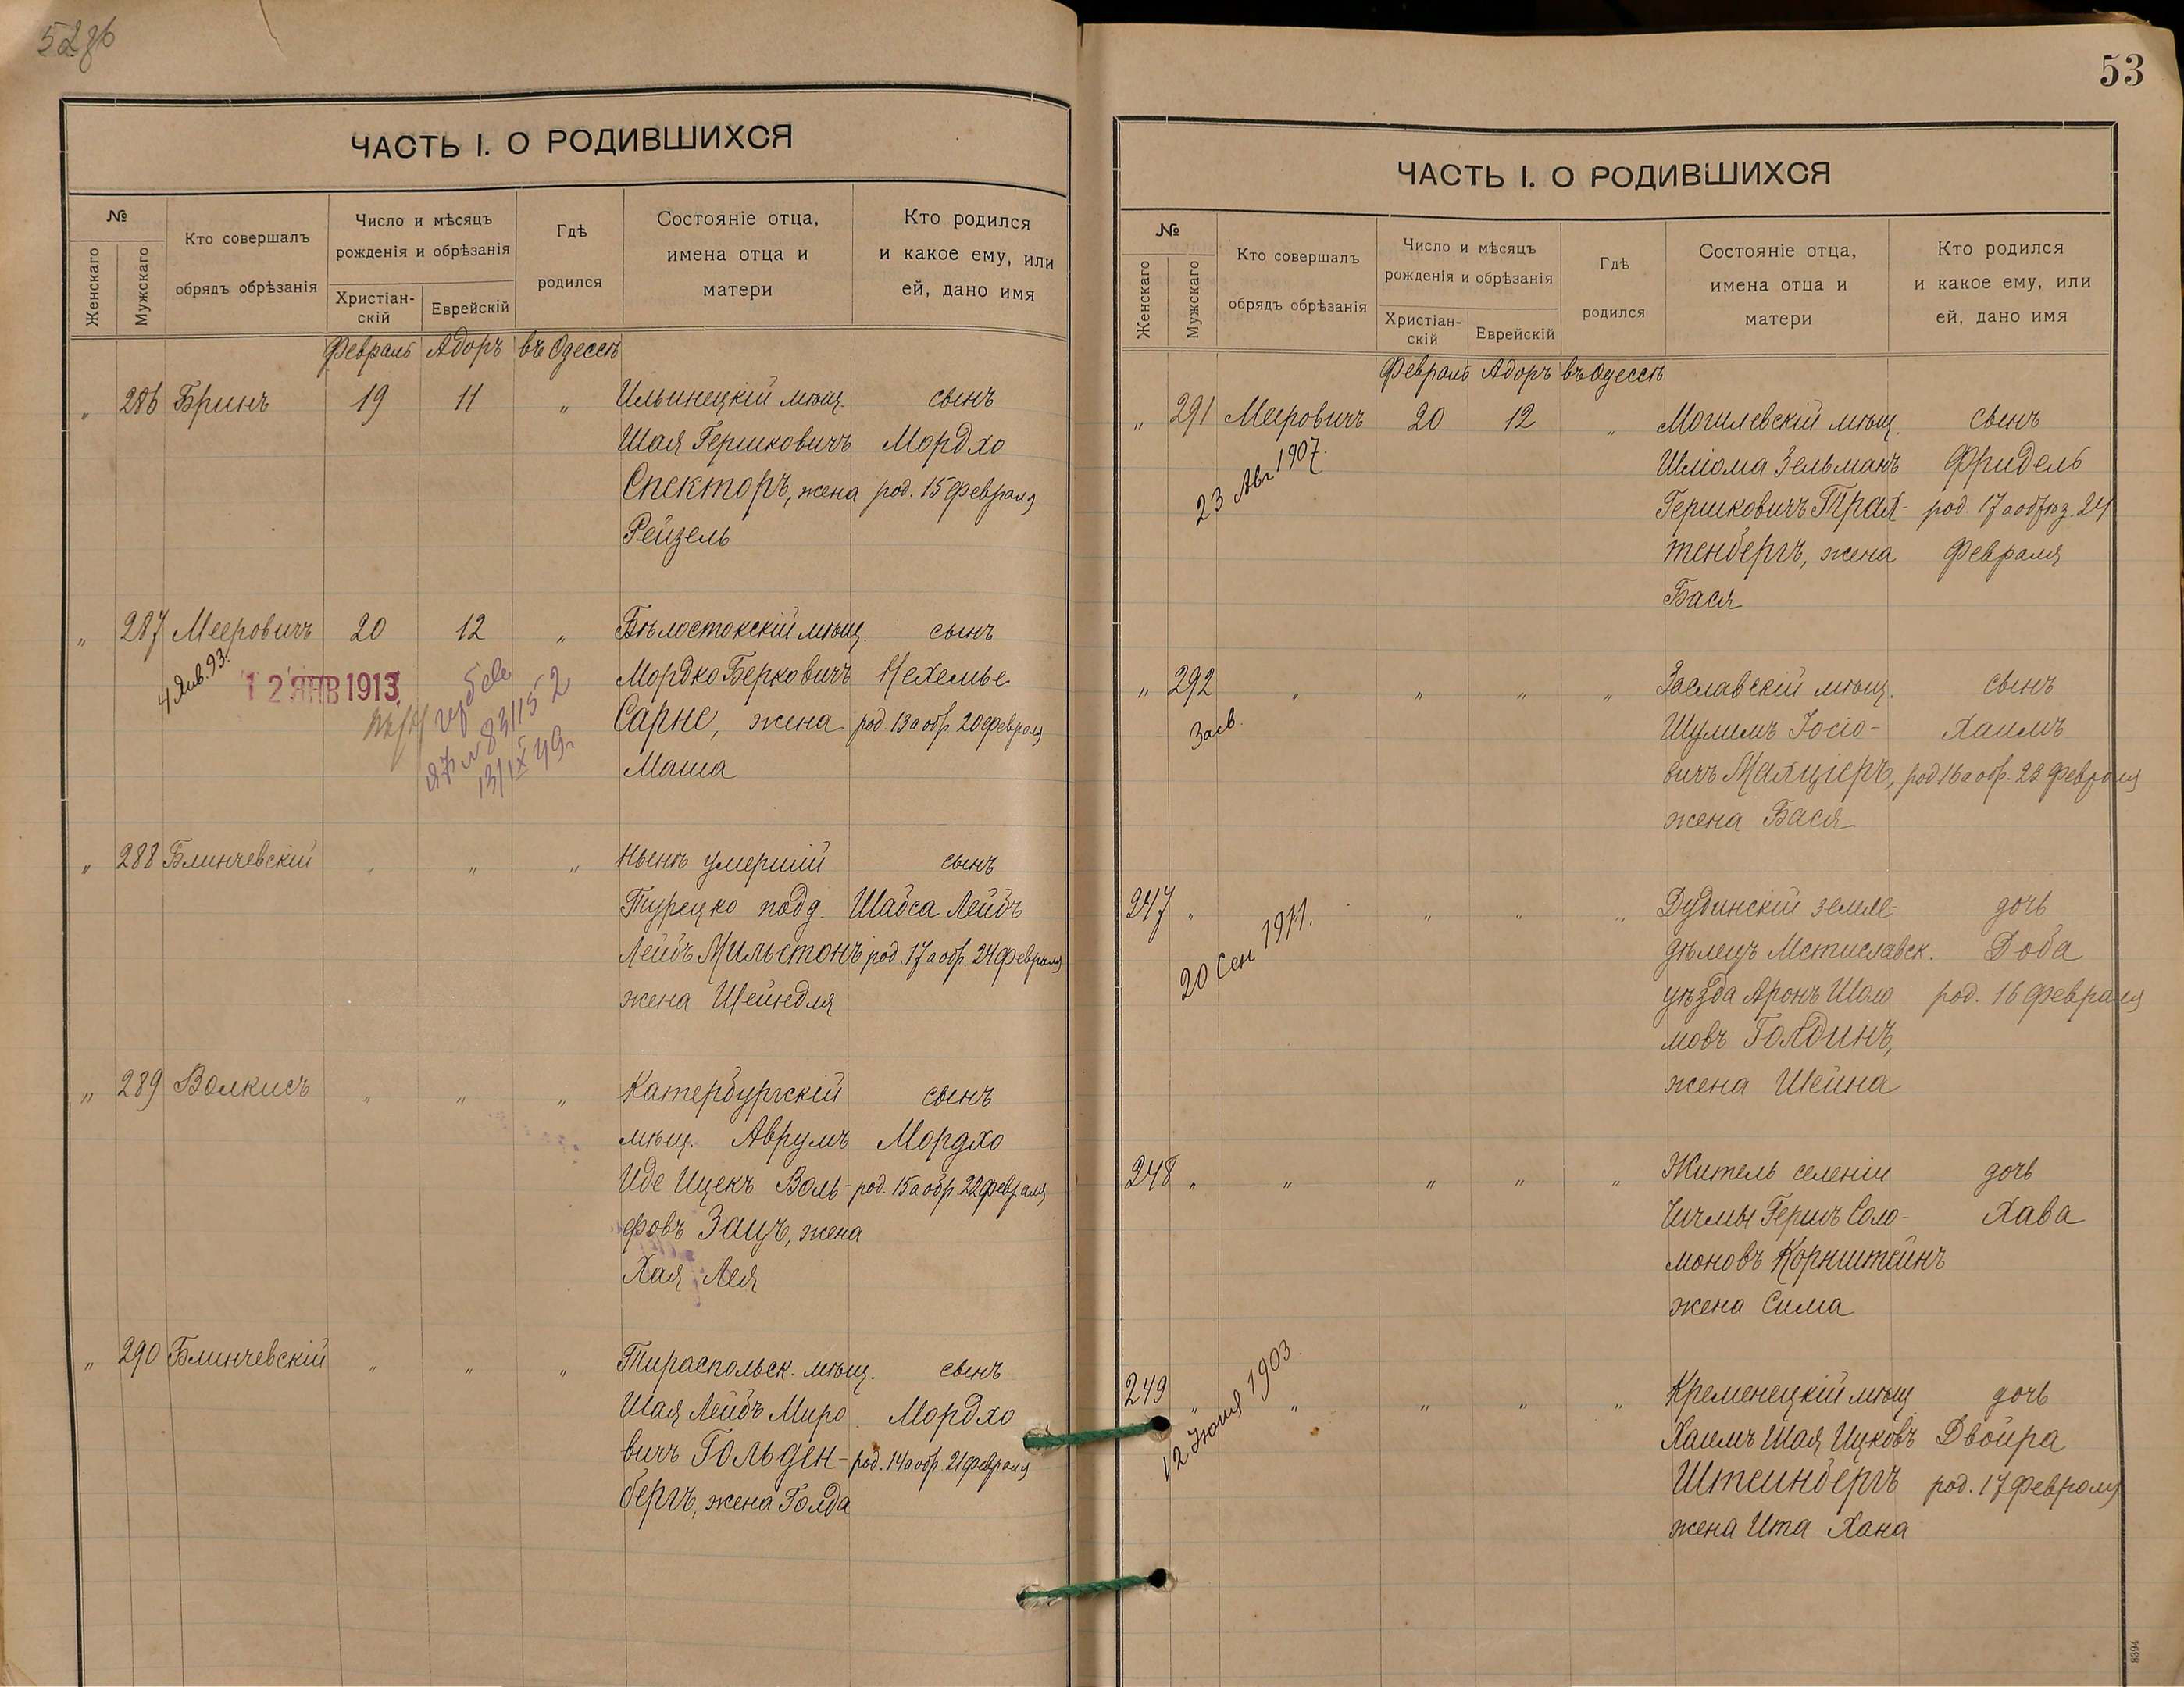 528б
ЧАСТЬ I. О РОДИВШИХСЯ
№
Женскаго
Мужскаго
Кто совершалъ
обрядъ обрѣзанія
Число и мѣсяцъ
рожденія и обрѣзанія
Христіан-
скій
Еврейскій
Гдѣ
родился
Состояніе отца,
имена отца и
матери
Кто родился
и какое ему, или
ей, дано имя
Февраль Адоръ въ Одессѣ
„ 286 Бринъ 19 11 „ Ильинецкій мѣщ. сынъ
Шая Гершковичъ Мордхо
Спекторъ, жена род. 15 февраля
Рейзель
„ 287 Мееровичъ 20 12 „ Бѣлостокскій мѣщ. сынъ
4 Янв. 93.
12 ЯНВ 1913
Мордко Берковичъ Нехемье
Сарне, жена род. 13 а обр. 20 февраля
13/IX 49 г
Маша
„ 288 Блинчевскій „ „ „ Нынѣ умершій сынъ
Турецко подд. Шабса Лейбъ
Лейбъ Мильстонъ род. 17 а обр. 24 февраля
жена Шейндля
„ 289 Волкисъ „ „ „ Катербургскій сынъ
мѣщ. Аврумъ Мордхо
Иде Ицекъ Воль- род. 15 а обр. 22 февраля
фовъ Зацъ, жена
Хая Лея
„ 290 Блинчевскій „ „ „ Тираспольск. мѣщ. сынъ
Шая Лейбъ Миро Мордхо
вичъ Гольден- род. 14 а обр. 21 февраля
бергъ, жена Голда
53
ЧАСТЬ I. О РОДИВШИХСЯ
№
Женскаго
Мужскаго
Кто совершалъ
обрядъ обрѣзанія
Число и мѣсяцъ
рожденія и обрѣзанія
Христіан-
скій
Еврейскій
Гдѣ
родился
Состояніе отца,
имена отца и
матери
Кто родился
и какое ему, или
ей, дано имя
Февраль Адоръ въ Одессѣ
„ 291 Мееровичъ 20 12 „ Могилевскій мѣщ. сынъ
23 Авг 1907.
Шліома Зельманъ Фридель
Гершковичъ Трах- род. 17 а обрѣз. 24
тенбергъ, жена Февраля
Бася
„ 292 „ „ „ „ Заславскій мѣщ. сынъ
Засв.
Шулимъ Іосіо- Хаимъ
вичъ Малцеръ, род 16 а обр. 23 Февраля
жена Бася
247 „ „ „ „ Дубинскій земле- дочь
20 Сен 1911.
дѣлецъ Мстиславск. Доба
уѣзда Аронъ Шоло род. 16 февраля
мовъ Голдинъ,
жена Шейна
248 „ „ „ „ „ Житель селенія дочь
Чичмы Гершъ Соло- Хава
моновъ Корнштейнъ
жена Сима
249 „ „ „ „ „ Кременецкій мѣщ дочь
12 Іюня 1903.
Хаимъ Шая Ицковъ Двойра
Штейнбергъ род. 17 февраля
жена Ита Хана
8394